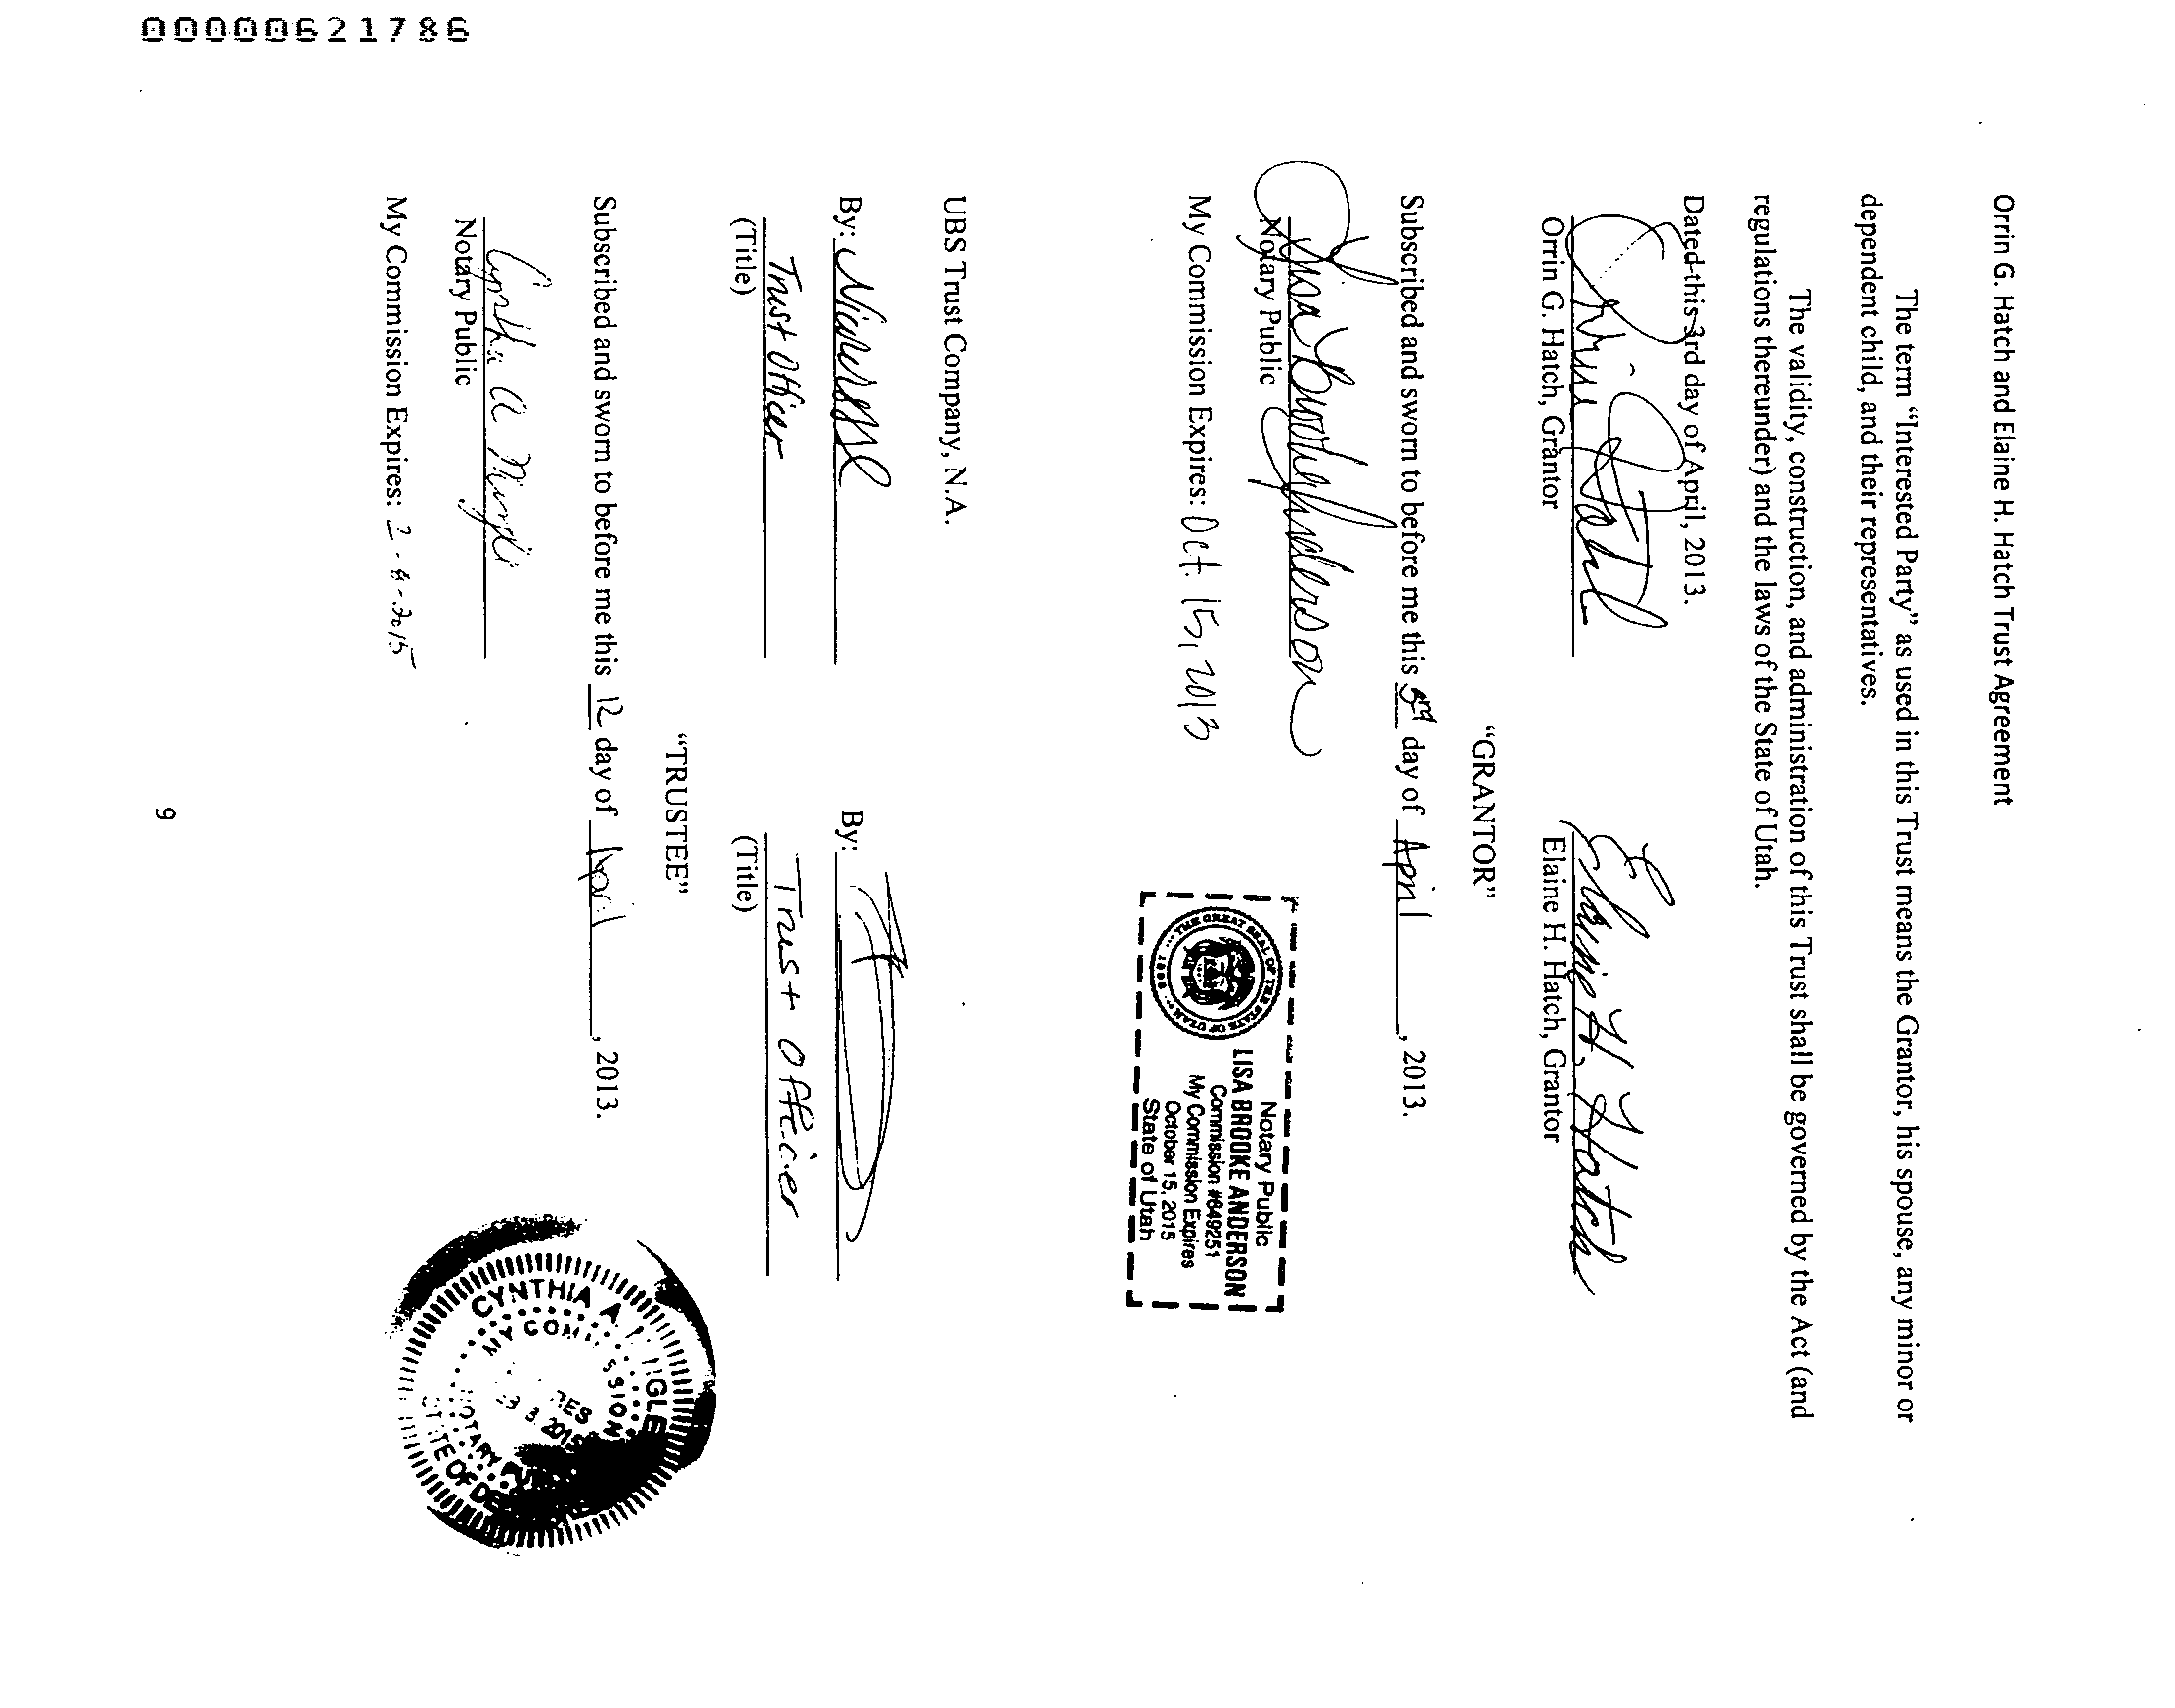 00000621786
Orrin G. Hatch and Elaine H. Hatch Trust Agreement
The term “Interested Party” as used in this Trust means the Grantor, his spouse, any minor or
dependent child, and their representatives.
The validity, construction, and administration of this Trust shall be governed by the Act (and
regulations thereunder) and the laws of the State of Utah.
Dated this 3rd day of April, 2013.
Elaine H. Hatch
Orrin G. Hatch, Grantor Elaine H. Hatch, Grantor
“GRANTOR”
Subscribed and sworn to before me this day of April, 2013.
Lisa Brooke Anderson
Notary Public
My Commission Expires: Oct. 15, 2013
Notary Public
LISA BROOKE ANDERSON
Commission #649251
My Commission Expires
October 15, 2015
State of Utah
THE GREAT SEAL OF THE STATE OF UTAH
1896
UBS Trust Company, N.A.
By: By:
Trust Officer Trust Officer
(Title) (Title)
“TRUSTEE”
Subscribed and sworn to before me this 12 day of April, 2013.
Cynthia A
Notary Public
My Commission Expires: 2015
CYNTHIA A.
MY COMMISSION
2015
NOTARY
STATE OF
9